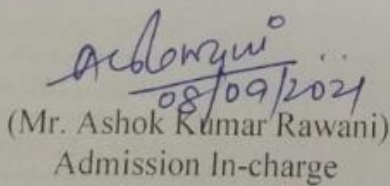 08/09/2021
(Mr. Ashok Kumar Rawani)
Admission In-charge